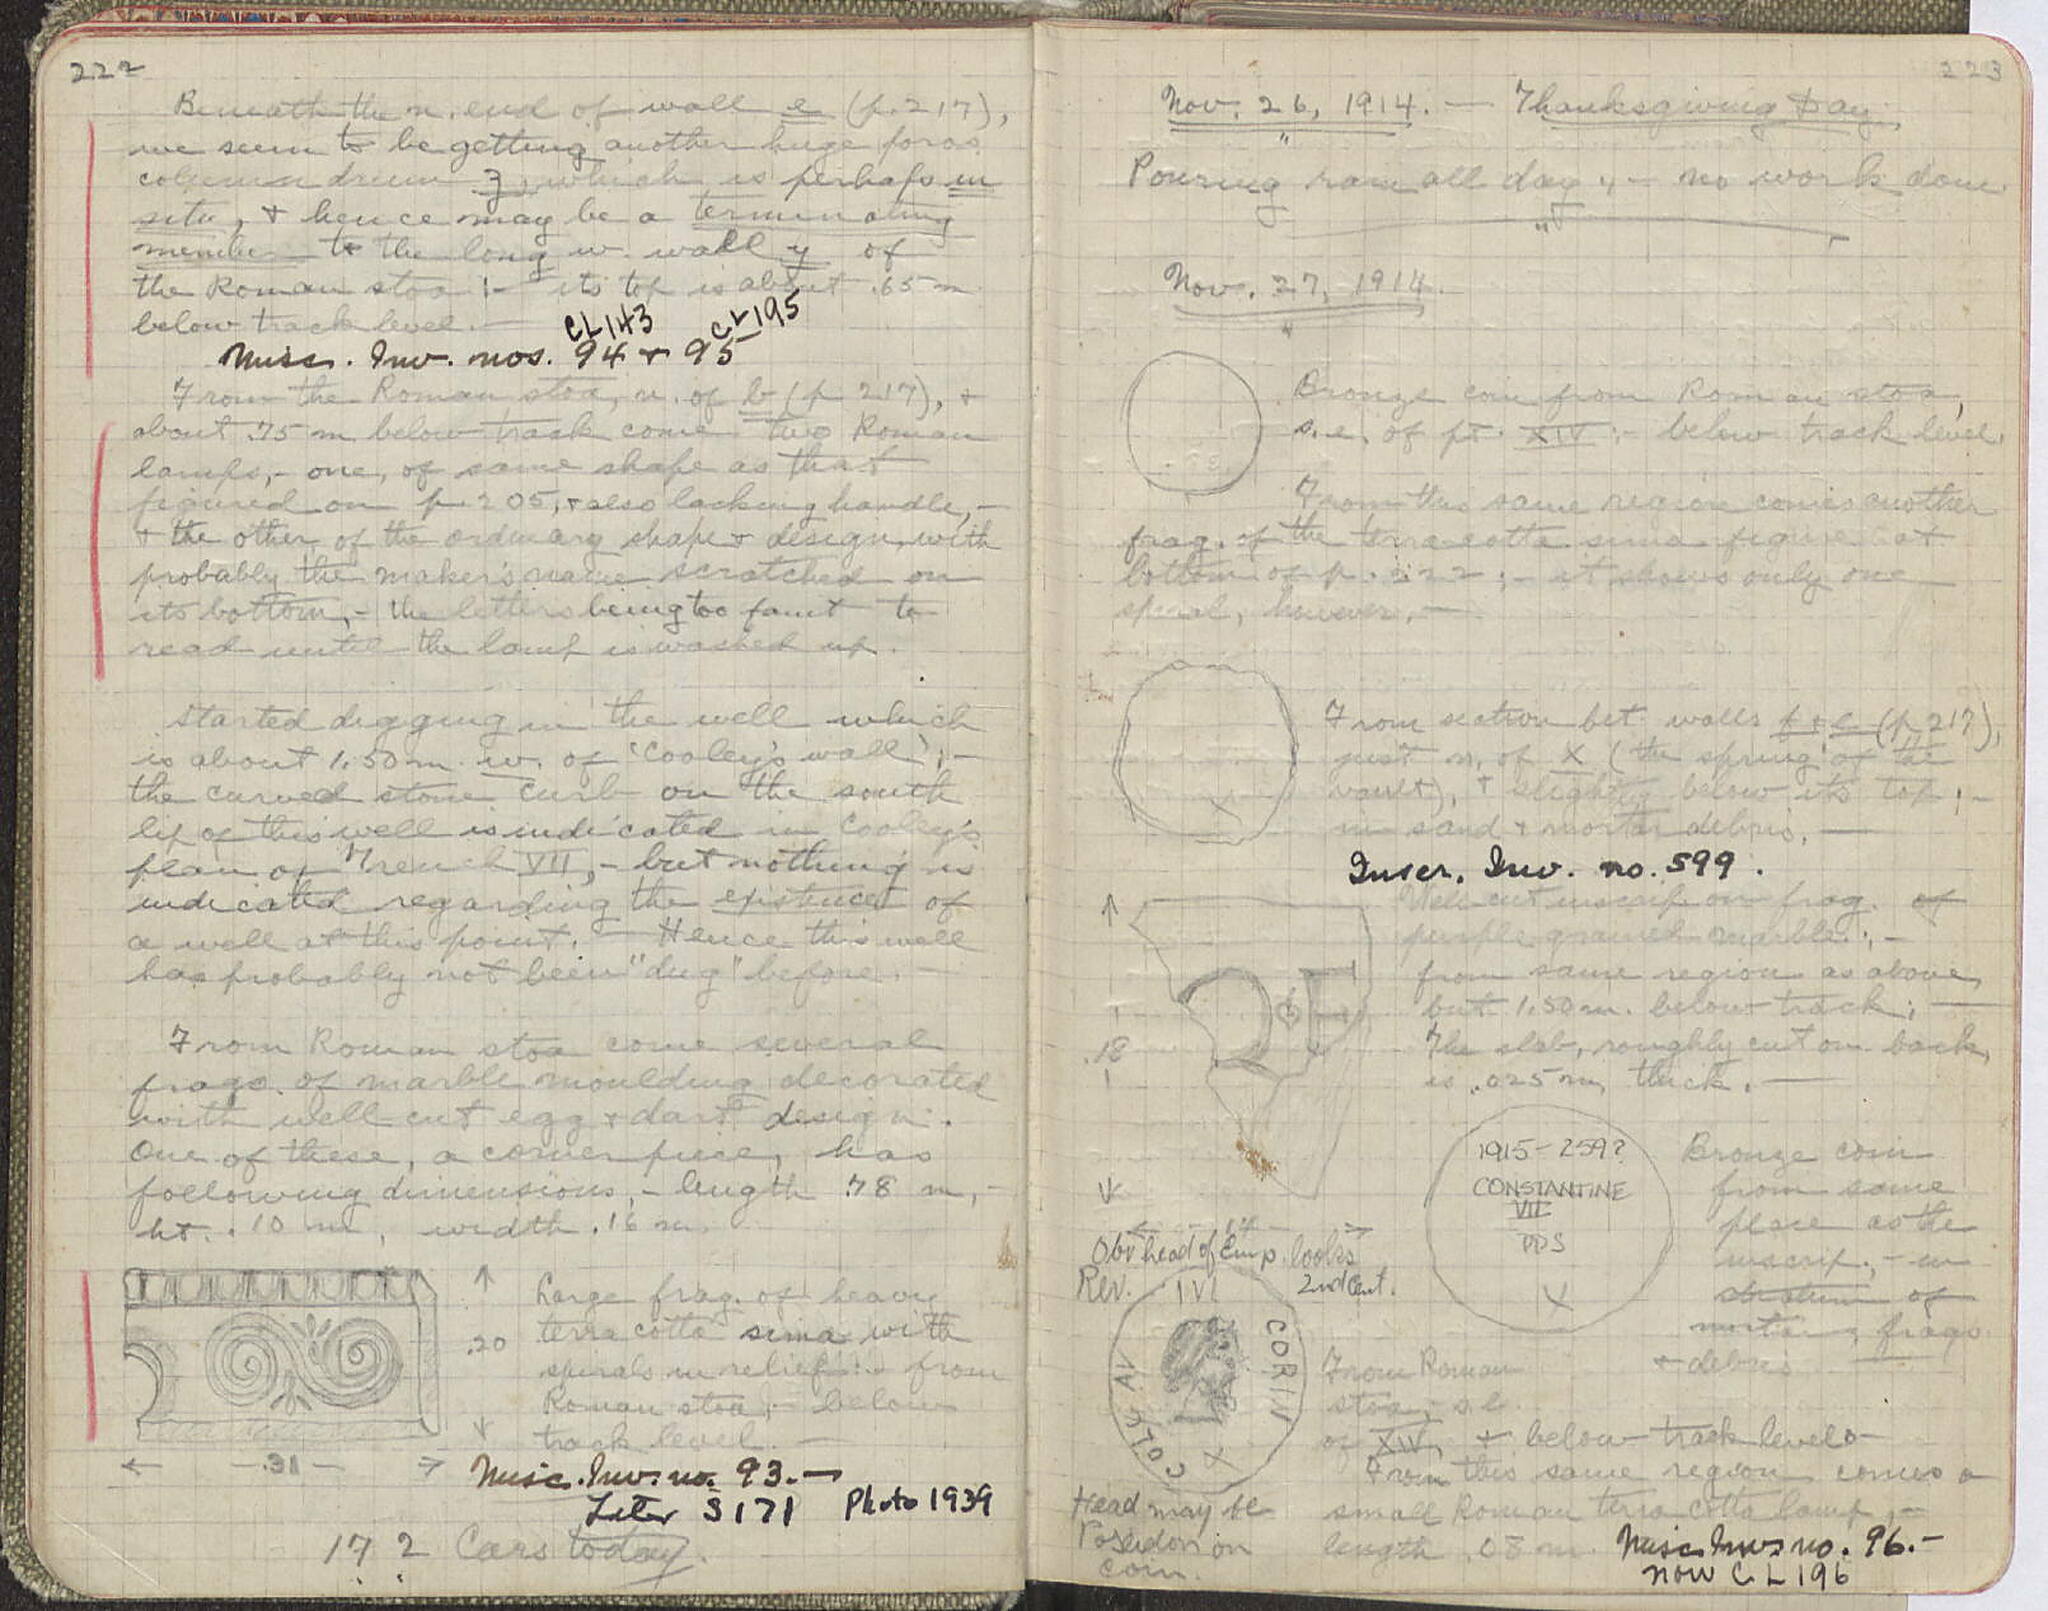 222
Beneath the n. end of wall e (p. 217),
we seem to be getting another huge poros
column drum z, which is perhaps in
situ, + hence may be a terminating
member to the long w. wall y of
the Roman stoa :- its top is about .65 m
below track level. —
CL143 CL195
Misc. Inv. nos. 94 + 95
From the Roman stoa, n. of b (p 217), +
about .75 m below track come two Roman
lamps, - one, of same shape as that
figured on p 205, + also lacking handle, -
+ the other, of the ordinary shape + design, with
probably the maker's name scratched on
its bottom, - the letters being too faint to
read until the lamp is washed up.
Started digging in the well which
is about 1.50 m. w. of 'Cooley's wall'; -
the curved stone curb on the south
lip of this well is indicated in Cooley's
plan of Trench VII, - but nothing is
indicated regarding the existence of
a well at this point. — Hence this well
has probably not been "dug" before. —
From Roman stoa come several
frags. of marble moulding decorated
with well cut egg + dart design.
One of these, a corner piece, has
following dimensions, - length .78 m, -
ht. .10 m, width .16 m.
Large frag. of heavy
terra cotta sima with
spirals in relief :- from
Roman stoa, - below
track level. —
.20
.31
Misc. Inv. no. 93. —
Later S 171 Photo 1939
172 Cars today.
? ?
223
Nov. 26, 1914. — Thanksgiving Day.
Pouring rain all day, - no work done
Nov. 27, 1914.
Bronze coin from Roman stoa,
s.e. of pt. XIV :- below track level.
From this same region comes another
frag. of the terra cotta sima figured at
bottom of p. 222 ; - it shows only one
spiral, however. —
From section bet. walls f + e (p 217),
just n. of X (the spring of the
vault), + slightly below its top ; -
in sand + mortar debris. —
X
Inscr. Inv. no. 599.
Well cut inscrip. on frag. of
purple grained marble ; -
from same region as above,
but 1.50 m. below track ; —
The slab, roughly cut on back,
is .025 m. thick. —
.18
.14
1915-259?
CONSTANTINE
VII
PPS
X
Bronze coin
from same
place as the
inscrip., - in
stratum of
mortar, frags
+ debris
Obv head of Emp. looks
2nd Cent.
Rev.
IVL
CORIN
COL LV AV
X
From Roman
stoa, s.e.
of XIV, + below track level -
From this same region comes a
small Roman terra cotta lamp, -
length .08 m. Misc. Inv. no. 96. —
now CL 196
Head may be
Poseidon on
coin.